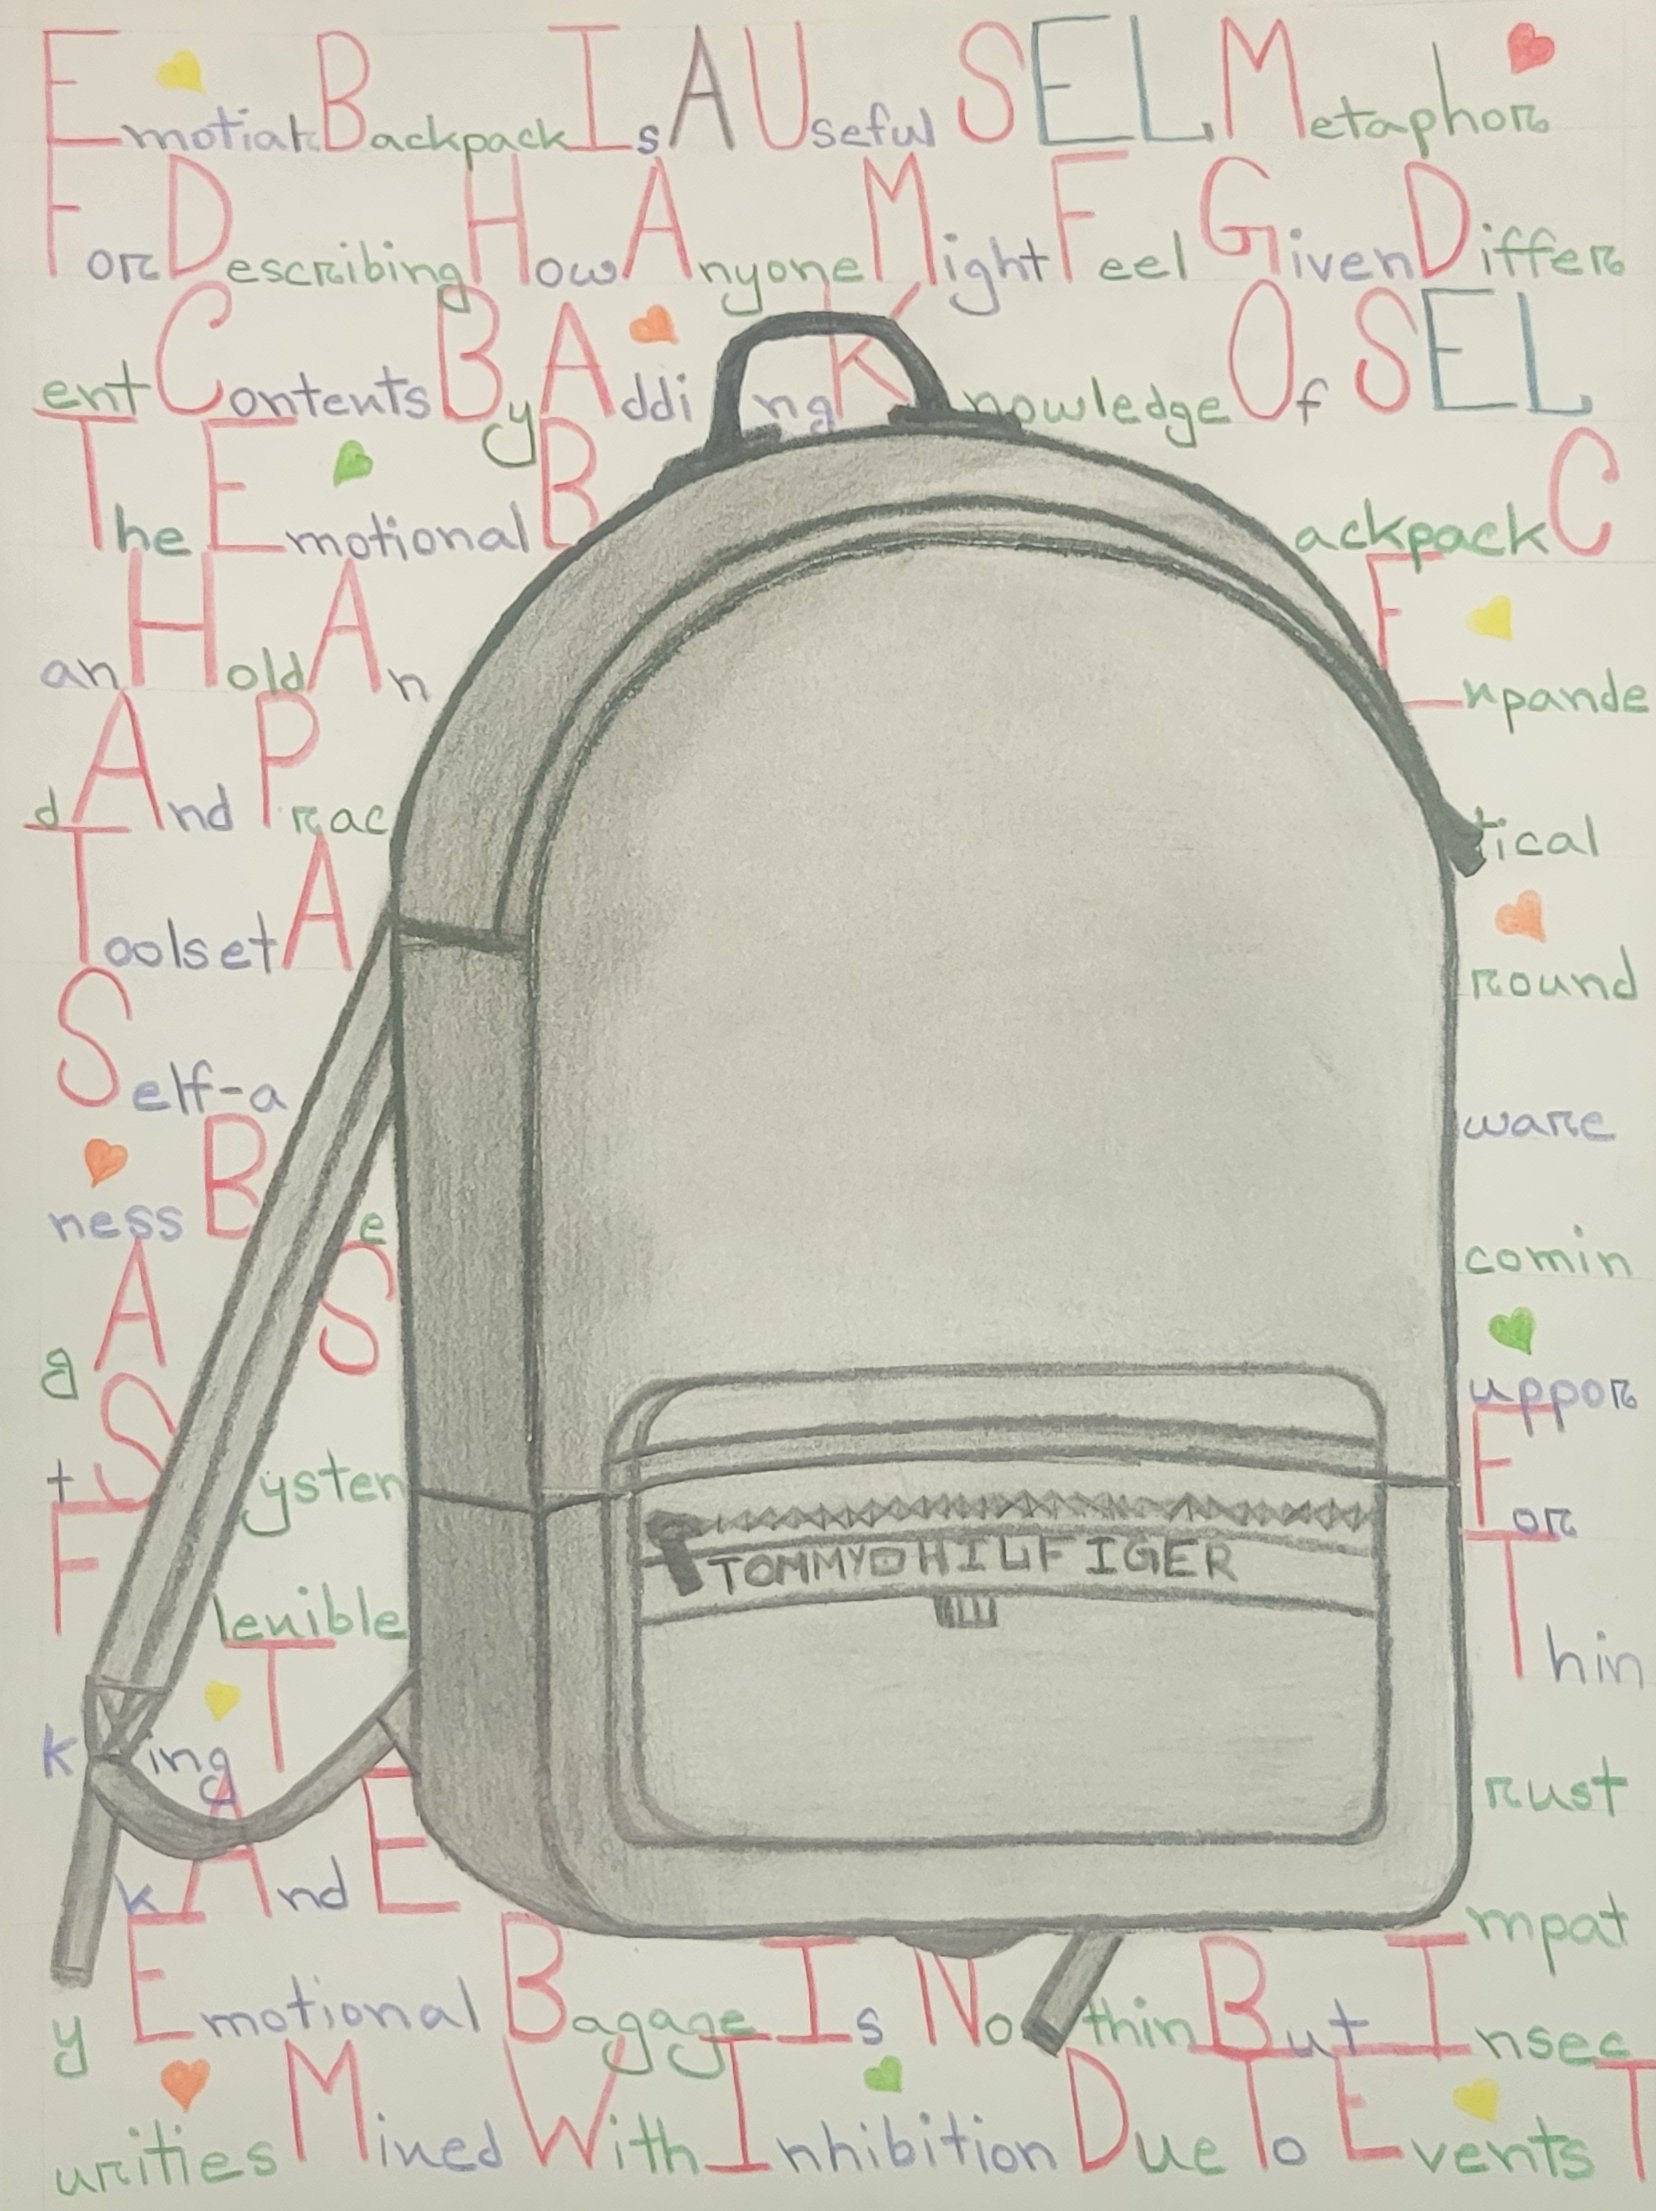 Emotial Backpack Is A Useful SEL Metaphor
For Describing How Anyone Might Feel Given Differ
ent Contents By Adding Knowledge Of SEL
The Emotional Backpack C
an Hold An Expande
d And Practical
Toolset Around
Self-aware
ness Becomin
g A Suppor
t System For
Flexible Thin
king Trust
k And Empat
y Emotional Bagage Is Nothin But Insec
urities Mixed With Inhibition Due To Events T
TOMMY HILFIGER